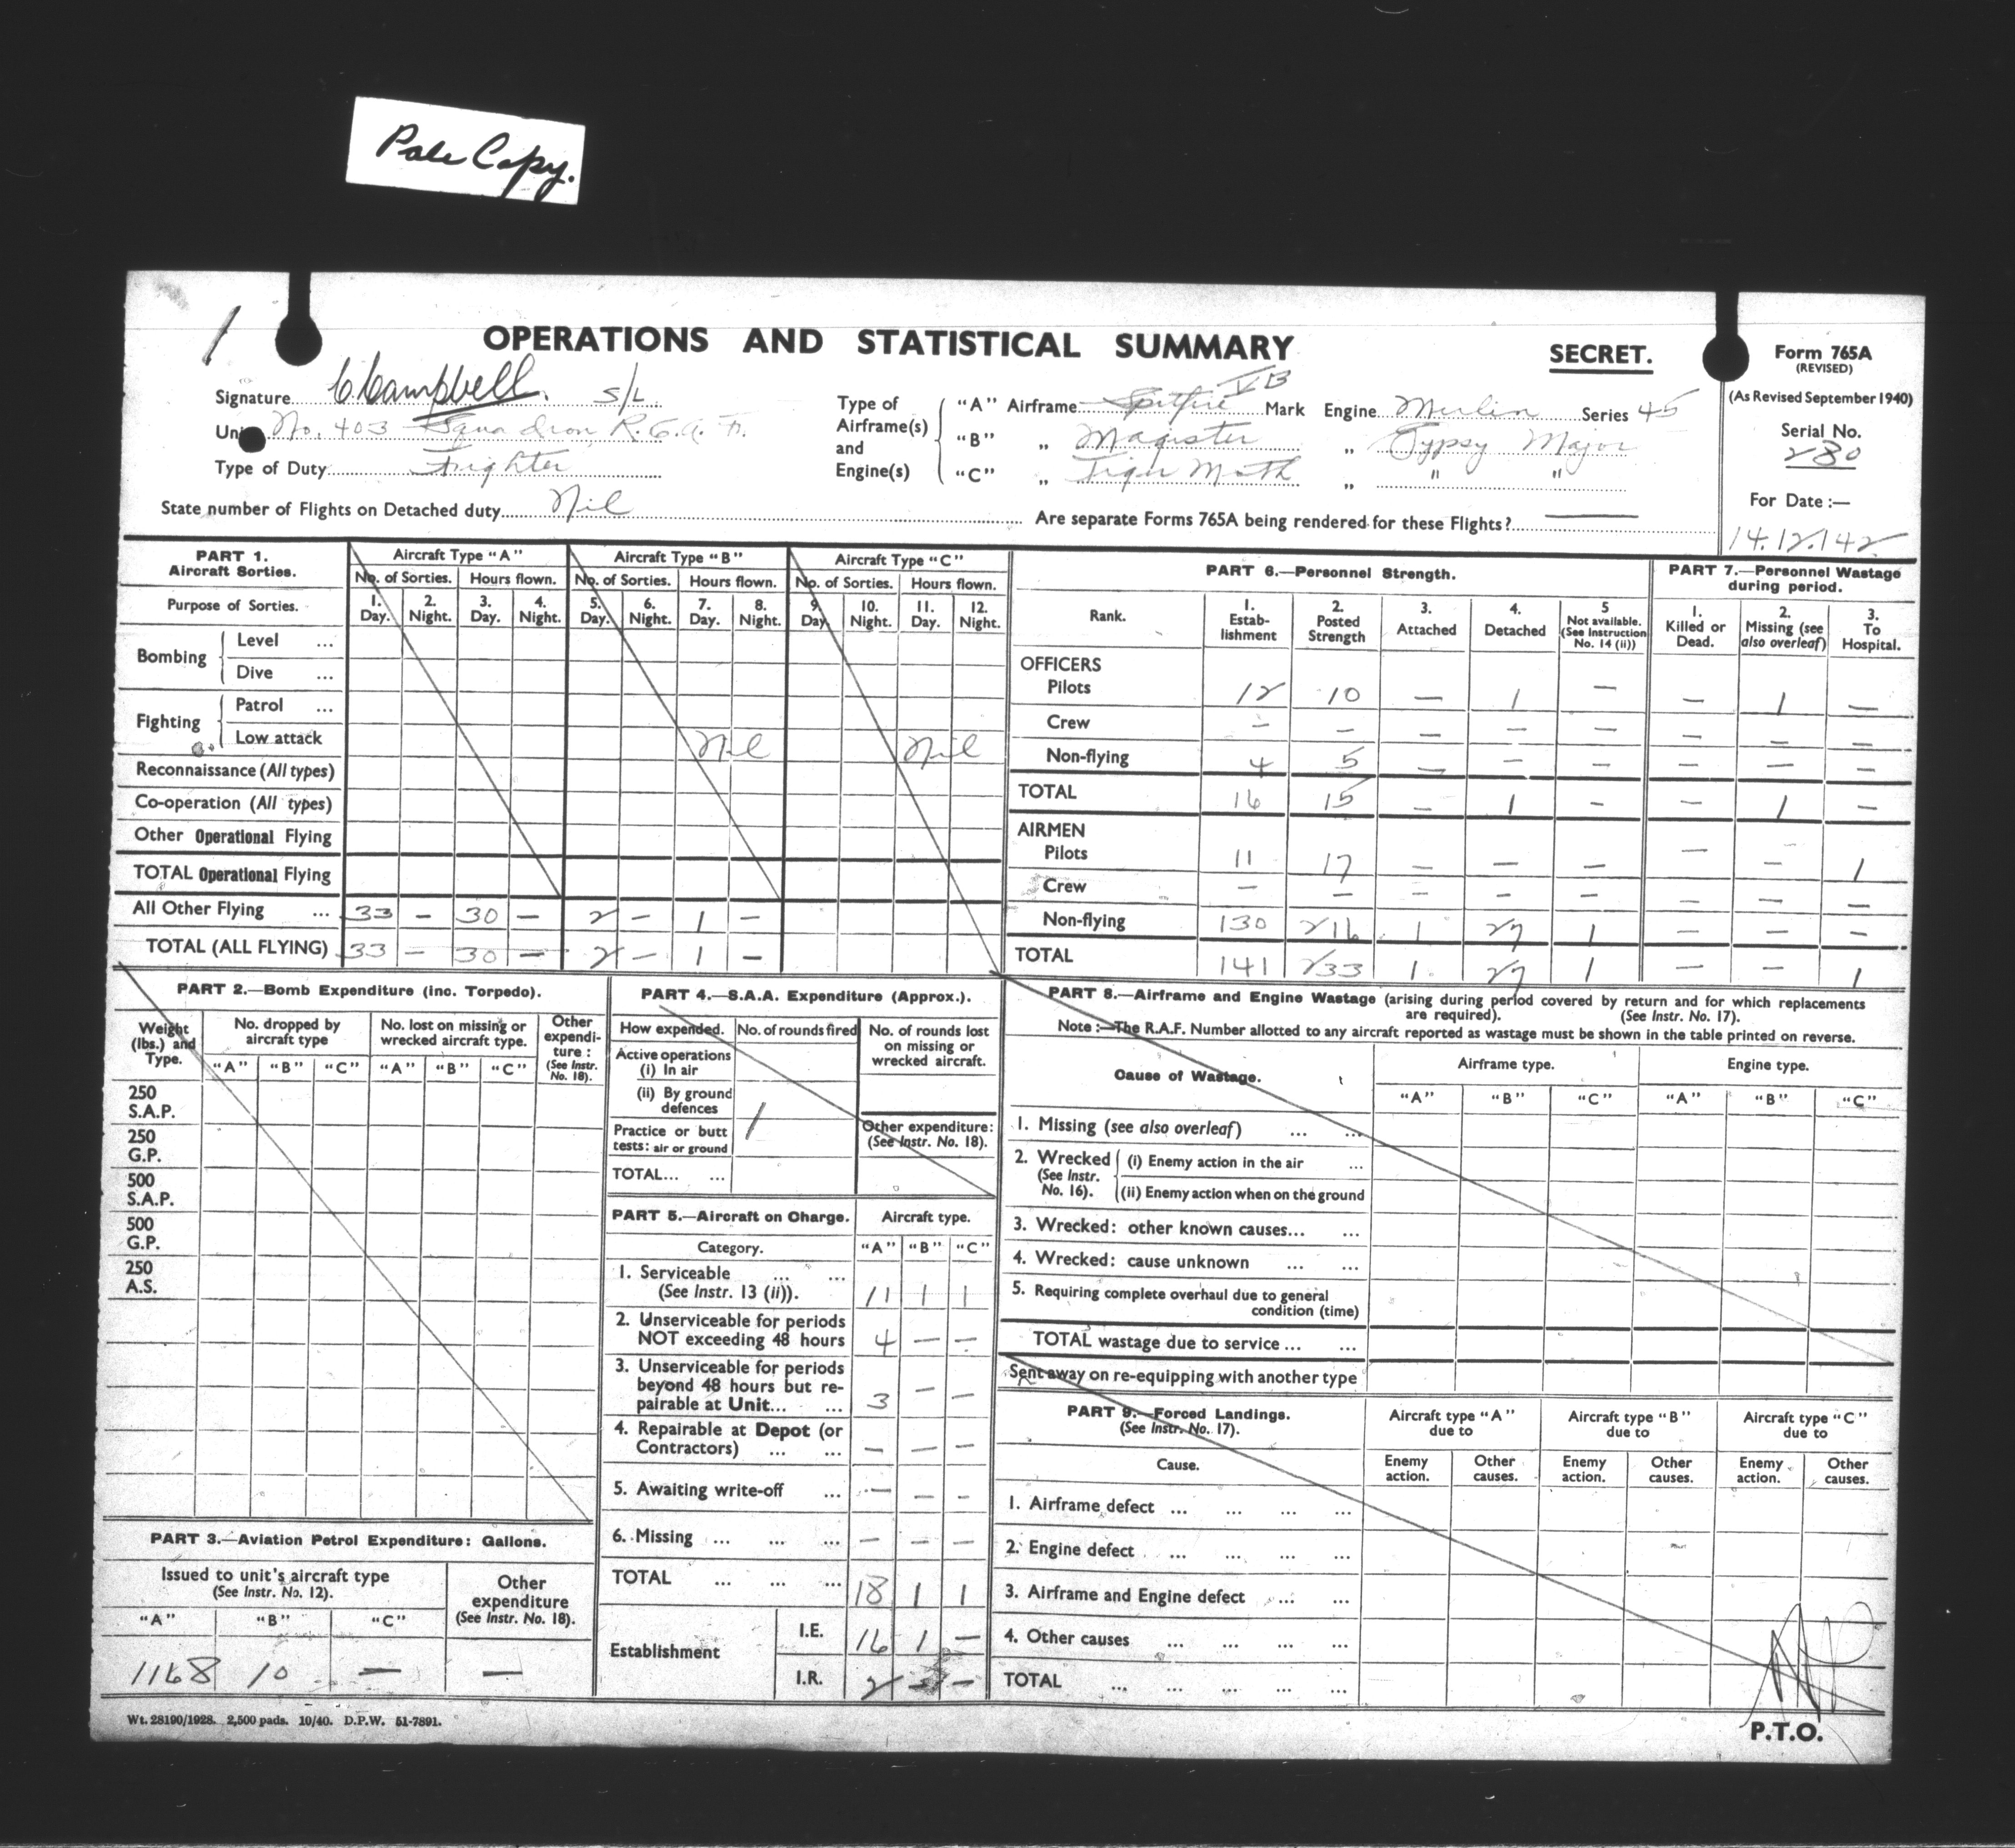 Pale Copy.
1
OPERATIONS AND STATISTICAL SUMMARY
SECRET.
Form 765A
(REVISED)
(As Revised September 1940)
Serial No.
280
For Date :—
14.12.142
Signature C Campbell. S/L
Unit No. 403 Squadron R.C.A.F.
Type of Duty Frighter
State number of Flights on Detached duty Nil
Type of Airframe(s) and Engine(s)
"A" Airframe Spitfire VB Mark Engine Merlin Series 45
"B" „ Magister „ Gypsy Major
"C" „ Tiger Moth „ " "
Are separate Forms 765A being rendered for these Flights? —
PART 1.
Aircraft Sorties.
Aircraft Type "A" Aircraft Type "B" Aircraft Type "C"
No. of Sorties. Hours flown. No. of Sorties. Hours flown. No. of Sorties. Hours flown.
Purpose of Sorties.
1. Day. 2. Night. 3. Day. 4. Night. 5. Day. 6. Night. 7. Day. 8. Night. 9. Day. 10. Night. 11. Day. 12. Night.
Bombing
Level ...
Dive ...
Fighting
Patrol ...
Low attack Nil Nil
Reconnaissance (All types)
Co-operation (All types)
Other Operational Flying
TOTAL Operational Flying
All Other Flying ... 33 — 30 — 2 — 1 —
TOTAL (ALL FLYING) 33 — 30 — 2 — 1 —
PART 6.—Personnel Strength.
Rank.
1. Establishment
2. Posted Strength
3. Attached
4. Detached
5 Not available. (See Instruction No. 14 (ii))
PART 7.—Personnel Wastage during period.
1. Killed or Dead.
2. Missing (see also overleaf)
3. To Hospital.
OFFICERS
Pilots 12 10 — 1 — — 1 —
Crew — — — — — — — —
Non-flying 4 5 — — — — — —
TOTAL 16 15 — 1 — — 1 —
AIRMEN
Pilots 11 17 — — — — — 1
Crew — — — — — — — —
Non-flying 130 216 1 27 1 — — —
TOTAL 141 233 1 27 1 — — 1
PART 2.—Bomb Expenditure (inc. Torpedo).
Weight (lbs.) and Type.
No. dropped by aircraft type
No. lost on missing or wrecked aircraft type.
Other expenditure : (See Instr. No. 18).
"A" "B" "C" "A" "B" "C"
250 S.A.P.
250 G.P.
500 S.A.P.
500 G.P.
250 A.S.
PART 3.—Aviation Petrol Expenditure: Gallons.
Issued to unit's aircraft type
(See Instr. No. 12).
Other expenditure
(See Instr. No. 18).
"A" "B" "C"
1168 10 — —
PART 4.—S.A.A. Expenditure (Approx.).
How expended. No. of rounds fired No. of rounds lost on missing or wrecked aircraft.
Active operations
(i) In air
(ii) By ground defences
Practice or butt tests: air or ground
Other expenditure:
(See Instr. No. 18).
TOTAL... ...
PART 5.—Aircraft on Charge. Aircraft type.
Category. "A" "B" "C"
1. Serviceable ... ...
(See Instr. 13 (ii)). 11 1 1
2. Unserviceable for periods
NOT exceeding 48 hours 4 — —
3. Unserviceable for periods
beyond 48 hours but re-
pairable at Unit... ... 3 — —
4. Repairable at Depot (or
Contractors) ... ... — — —
5. Awaiting write-off ... — — —
6. Missing ... ... ... — — —
TOTAL ... ... ... 18 1 1
Establishment
I.E. 16 1 —
I.R. 2 —
PART 8.—Airframe and Engine Wastage (arising during period covered by return and for which replacements are required). (See Instr. No. 17).
Note :—The R.A.F. Number allotted to any aircraft reported as wastage must be shown in the table printed on reverse.
Cause of Wastage.
Airframe type. Engine type.
"A" "B" "C" "A" "B" "C"
1. Missing (see also overleaf) ... ...
2. Wrecked (See Instr. No. 16).
(i) Enemy action in the air ...
(ii) Enemy action when on the ground
3. Wrecked: other known causes... ...
4. Wrecked: cause unknown ... ...
5. Requiring complete overhaul due to general
condition (time)
TOTAL wastage due to service ... ...
Sent away on re-equipping with another type
PART 9.—Forced Landings.
(See Instr. No. 17).
Aircraft type "A" due to
Aircraft type "B" due to
Aircraft type "C" due to
Cause.
Enemy action. Other causes. Enemy action. Other causes. Enemy action. Other causes.
1. Airframe defect ... ... ... ...
2. Engine defect ... ... ... ...
3. Airframe and Engine defect ... ...
4. Other causes ... ... ... ...
TOTAL ... ... ... ... ...
Wt. 28190/1928. 2,500 pads. 10/40. D.P.W. 51-7891.
P.T.O.